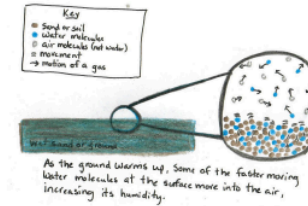 Key
Sand or soil
water molecules
air molecules (not water)
movement
→ motion of a gas
wet sand or ground
As the ground warms up, some of the faster moving
water molecules at the surface move into the air,
increasing its humidity.